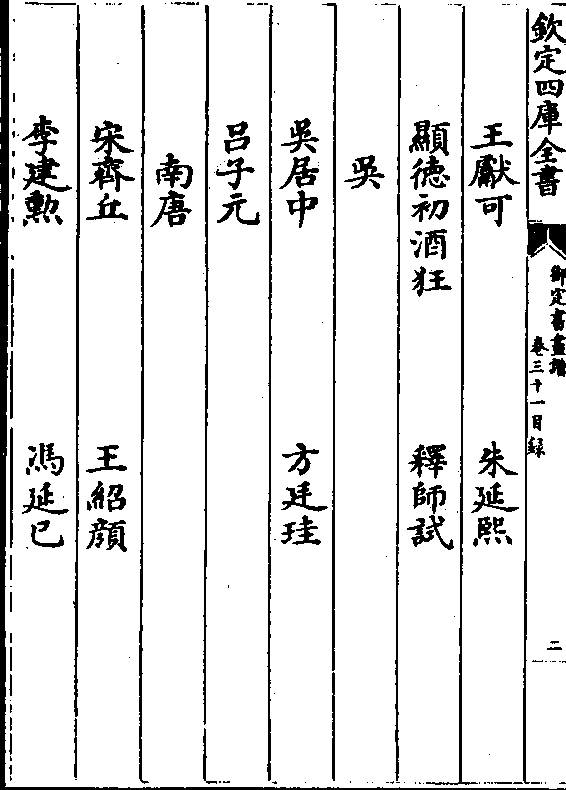 欽定四庫全書
御定書畫譜
卷三十一目録
二
王獻可 朱延熙
顯德初酒狂 釋師試
吳
吳居中 方廷珪
呂子元
南唐
宋齊丘 王紹顔
李建勲 馮延巳